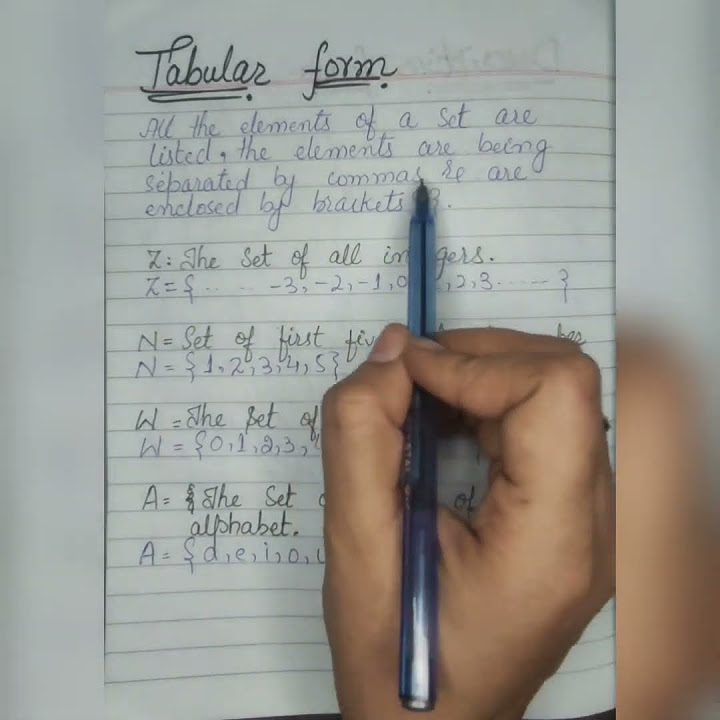 Tabular form
All the elements of a set are
listed, the elements are being
separated by commas & are
enclosed by brackets
Z: The set of all in gers.
Z = { ..... -3, -2, -1, 0 , 2, 3 ...... }
N = Set of first fiv
N = {1, 2, 3, 4, 5}
W = The set of
W = {0, 1, 2, 3,
A = The Set of
alphabet.
A = {a, e, i, o, u